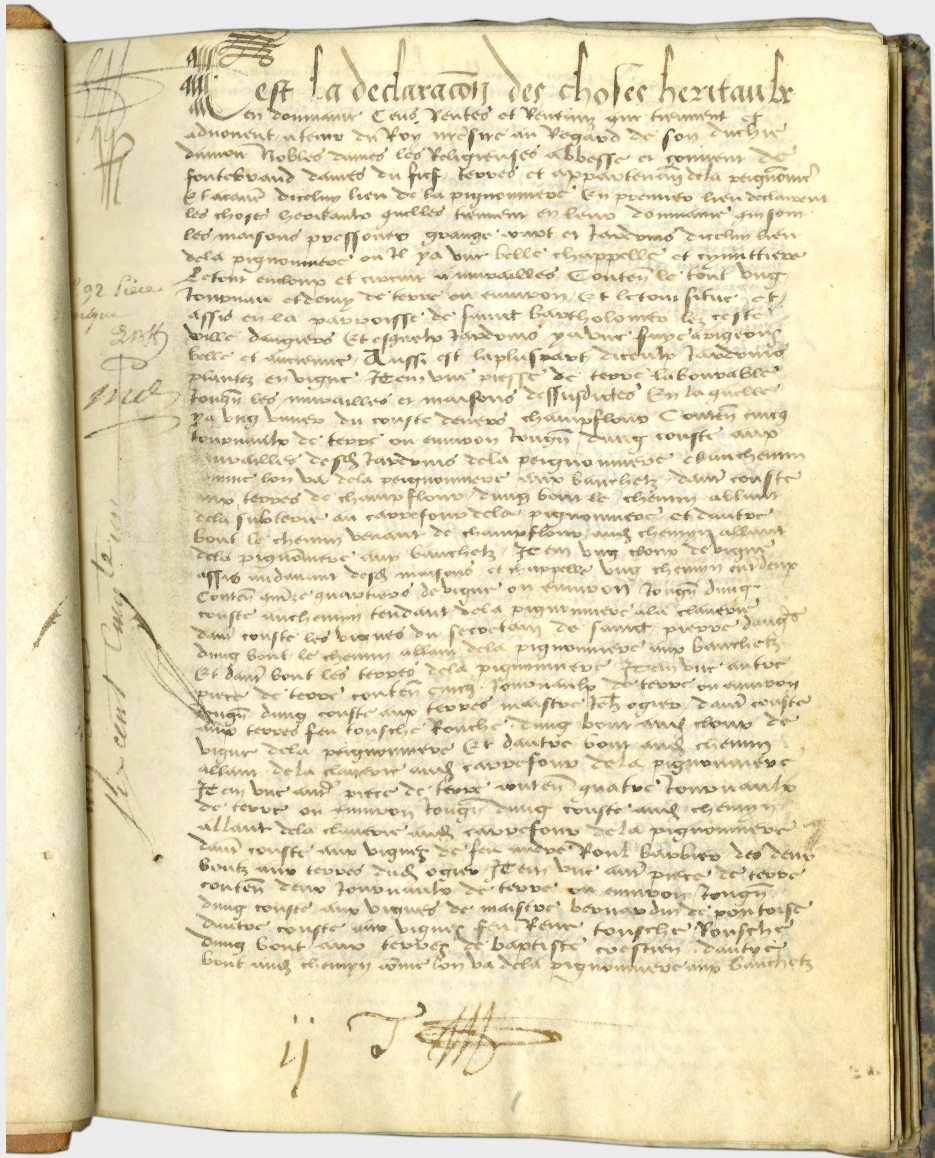 Cest la declaracon des choses heritaulx
en dommaine Cens Rentes et Revenuz que tiennent et
advouent a tenir du Roy nre sire au Regard de son duchie
danjou Nobles dames les Religieuses abbesse et convent de
fontebraud dames du fief terres et appartenan de la peignonnie
Et dicelluy lieu de la pignonniere En premier lieu declairent
les choses heritaulx quelles tiennent en leur dommaine qui sont
les maisons pressouer grange court et Jardrins dicelluy lieu
de la pignonniere ou Il ya une belle chappelle et cymittiere
Le tout enclous et circuit a murailles Conten le tout ung
Journau et demy de terre ou environ Et le tout situe et
assis en la parroisse de sainct bartholomer lez ceste
ville dangiers Et esquelz Jardrins ya une fuye a pigeons
belle et ancienne Aussi est la pluspart diceulx Jardrins
plantez en vigne Item une piesse de terre labourable
Joign les murailles et maisons dessusdites En laquelle
ya ung vivier du couste devers champflour Conten cincq
Journaulx de terre ou environ Joign dung couste aux
murailles desd Jardrins de la peignonniere chemin
comme lon va de la peignonniere aux banchetz daut couste
aux terres de champflour dung bout le chemin allant
de la au carrefour de la pignonniere et dautre
bout le chemin venant de champflour aud chemyn allant
de la pignoniere aux banchetz Item ung cloux de vigne
assis au davant desd maisons et chappelle ung chemyn entredeux
Conten quinze quartiers de vigne ou environ Joign dung
couste au chemin tendant de la pignonniere a la claverie
daut couste les vignes du secretain de sainct pierre dangs
dung bout le chemin allant de la pignonniere aux banchetz
Et daut bout les terres de la pignonniere Item une autre
piece de terre conten cincq Journaulx de terre ou environ
Joign dung couste aux terres maistre Jeh ogier daut couste
aux terres feu tousche Ronche dung bout aud cloux de
vigne de la peignonniere Et dautre bout aud chemin
allant de la claverie aud carrefour de la pignonniere
Item une aut piece de terre conten quatre Journaulx
de terre ou environ Joign dung couste aud chemyn
allant de la claverie aud carrefour de la pignonniere
daut couste aux vignes de feu andre Roul barbier des deux
boutz aux terres dud ogier Item une aut piece de terre
conten deux Journaulx de terre ou environ Joign
dung couste aux vignes de maistre bernardin de pontoise
dautre couste aux vignes feu Rene tousche Ronsche
dung bout aux terres de baptiste coestien dautre
bout aud chemyn come lon va de la pignonniere aux banchetz
ij